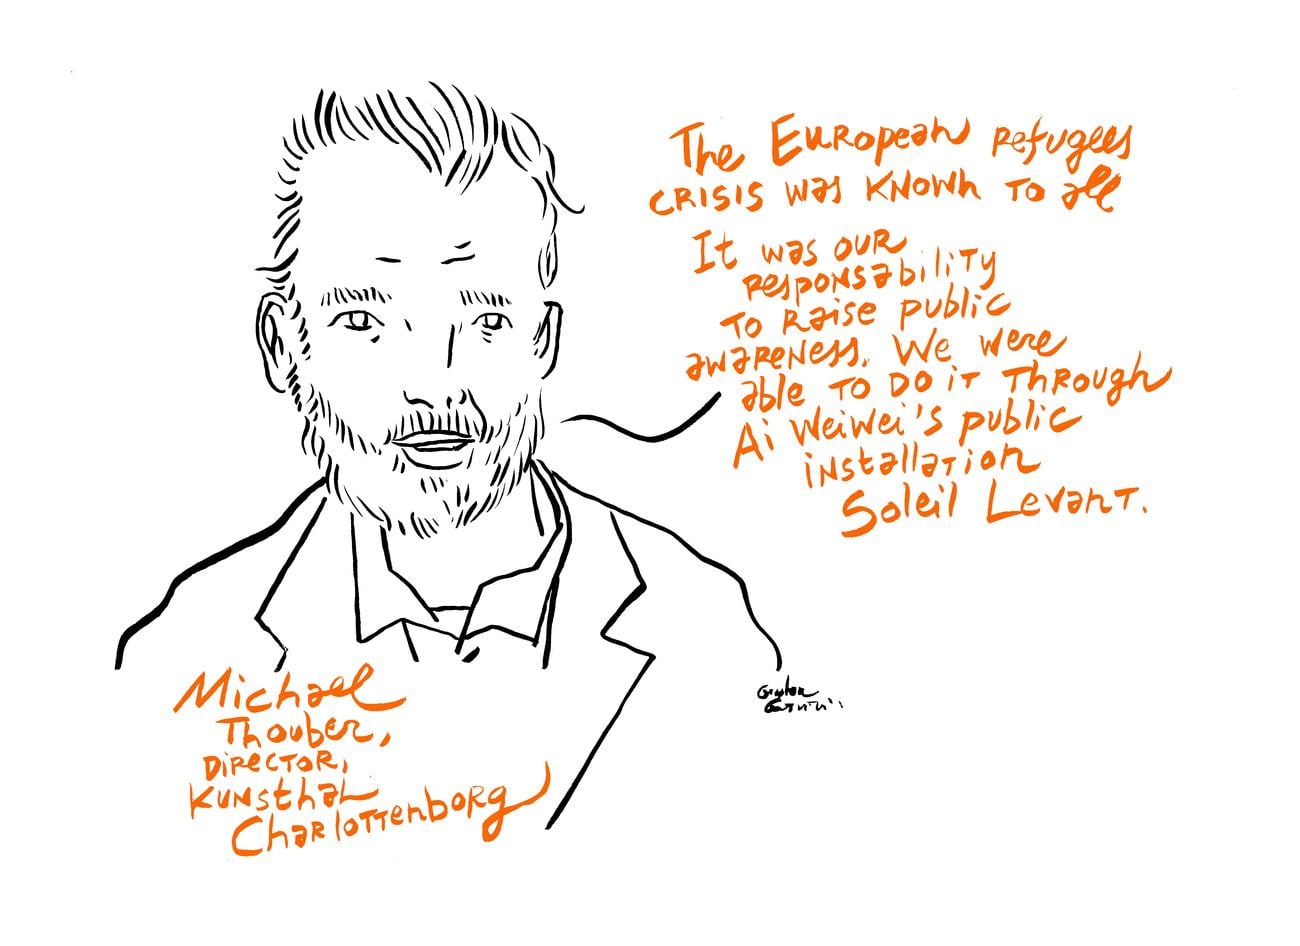 The European refugees
crisis was known to all
It was our
responsability
to raise public
awareness. We were
able to do it through
Ai Weiwei's public
installation
Soleil Levant.
Michael
Thouber,
Director,
Kunsthal
Charlottenborg